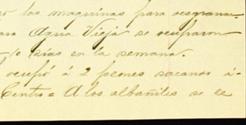 las maquinas para desgrana
para Agua Vieja se ocuparon
dias en la semana.
ocupó á 2 peones sacanos á
Centro = A los albañiles se le